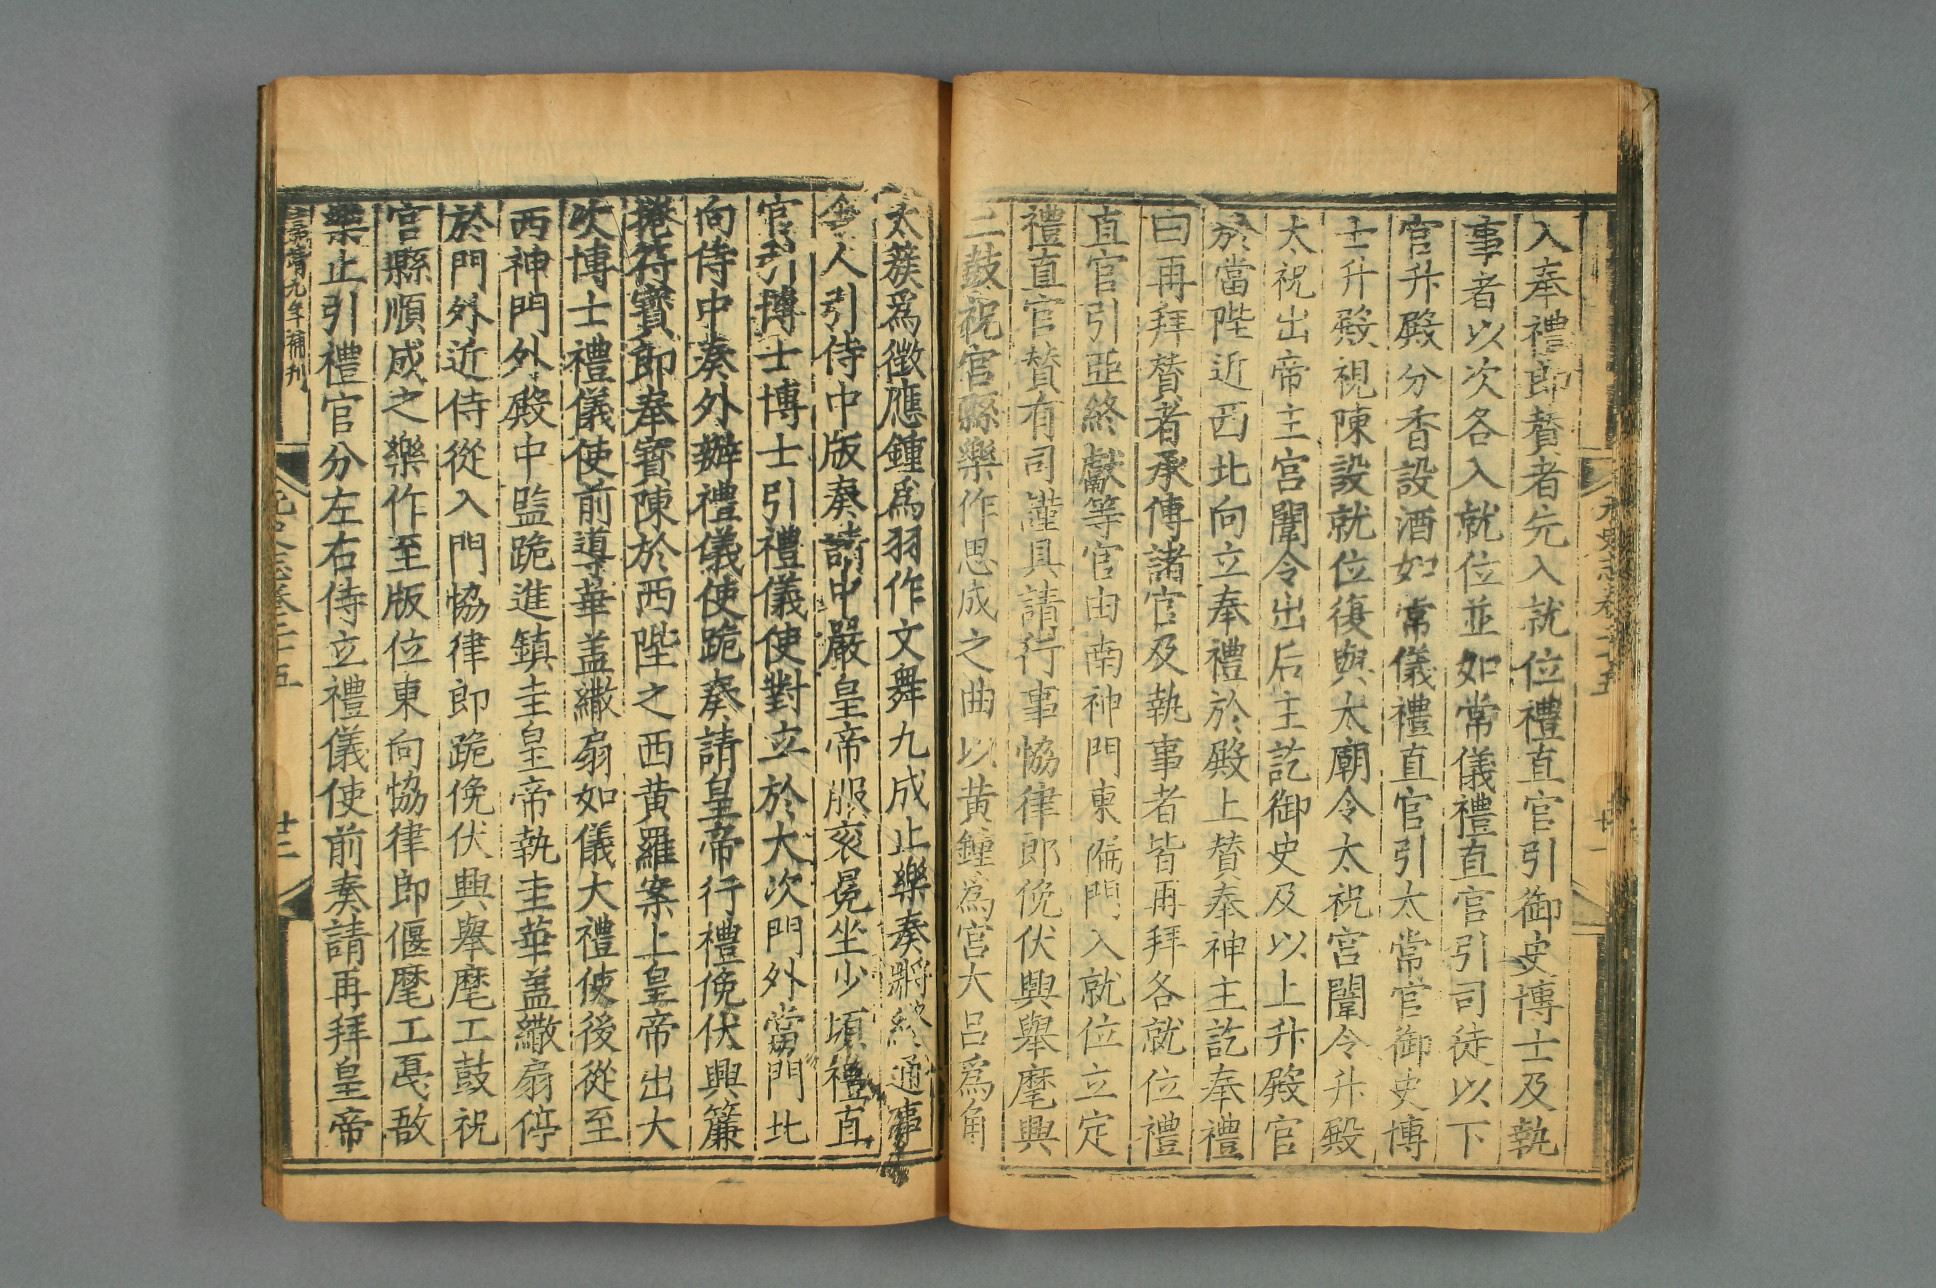 元史志卷二十五
廿一
入奉禮郎贊者先入就位禮直官引御史博士及執
事者以次各入就位並如常儀禮直官引司徒以下
官升殿分香設酒如常儀禮直官引太常官御史博
士升殿視陳設就位復與太廟令太祝宮闈令升殿
太祝出帝主宮闈令出后主訖御史及以上升殿官
於當陛近西北向立奉禮於殿上贊奉神主訖奉禮
曰再拜贊者承傳諸官及執事者皆再拜各就位禮
直官引亞終獻等官由南神門東偏門入就位立定
禮直官贊有司謹具請行事協律郎俛伏興舉麾興
工鼓柷宮縣樂作思成之曲以黃鐘爲宮大呂爲角
太蔟爲徵應鍾爲羽作文舞九成止樂奏將終通事
舍人引侍中版奏請中嚴皇帝服袞冕坐少頃禮直
官引博士博士引禮儀使對立於大次門外當門北
向侍中奏外辦禮儀使跪奏請皇帝行禮俛伏興簾
捲符寶郎奉寶陳於西陛之西黃羅案上皇帝出大
次博士禮儀使前導華盖繖扇如儀大禮使後從至
西神門外殿中監跪進鎮圭皇帝執圭華盖繖扇停
於門外近侍從入門協律郎跪俛伏興舉麾工鼓柷
宮縣順成之樂作至版位東向協律郎偃麾工戛敔
樂止引禮官分左右侍立禮儀使前奏請再拜皇帝
元史志卷二十五
廿二
靖九年補刊